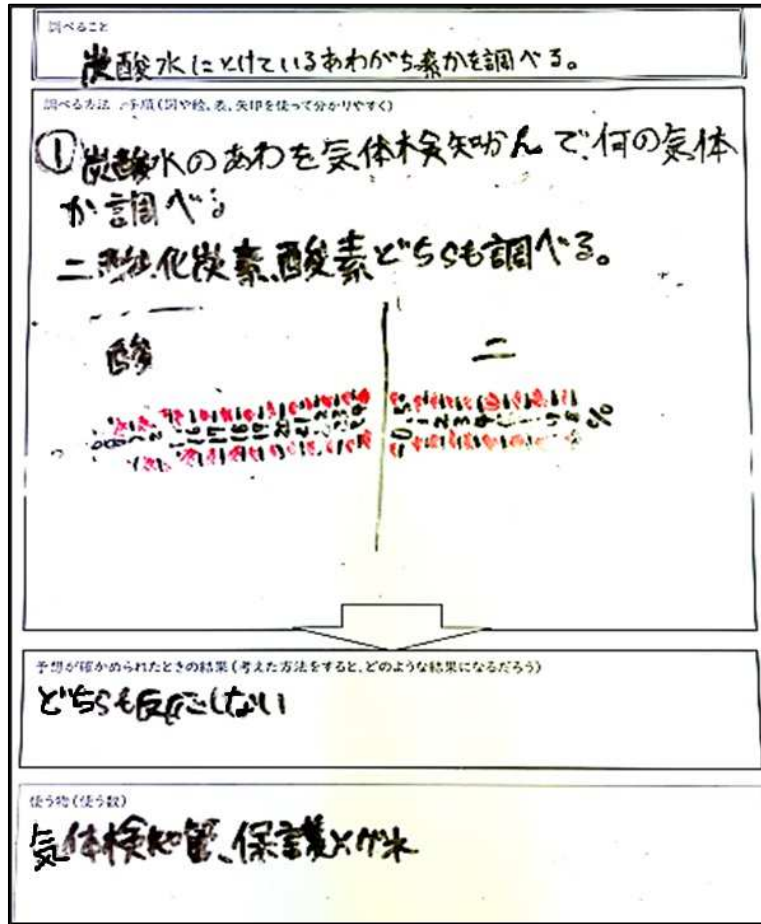 調べること
炭酸水にとけているあわがちっ素かを調べる。
調べる方法・手順(図や絵、表、矢印を使って分かりやすく)
① 炭酸水のあわを気体検知かんで、何の気体
か調べる
二酸化炭素、酸素どちらも調べる。
酸
二
予想が確かめられたときの結果(考えた方法をすると、どのような結果になるだろう)
どちらも反応しない
使う物(使う数)
気体検知管、保護メガネ